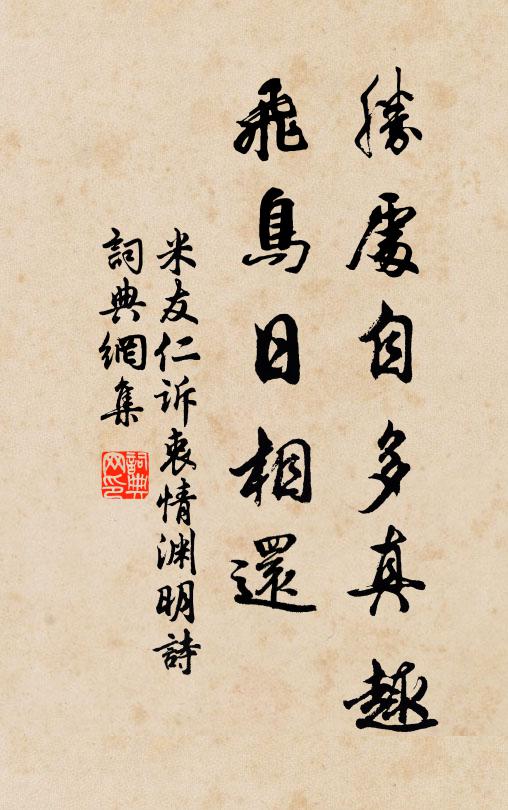 勝處自多真趣
飛鳥日相還
米友仁訴衷情渊明詩
詞典網集
詞典网印